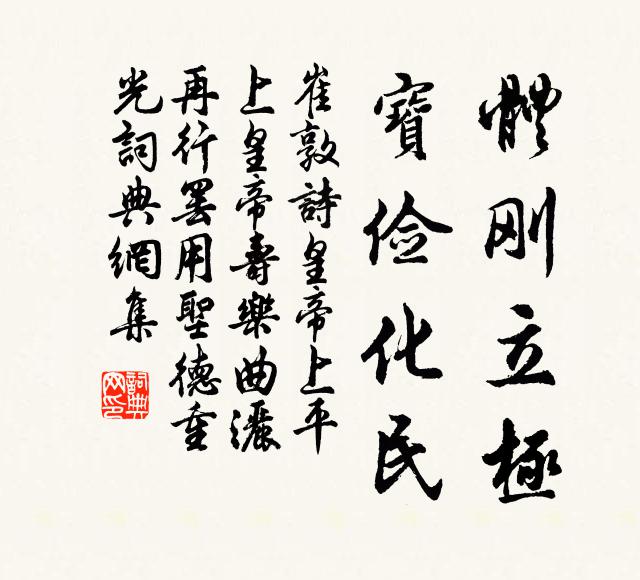 體刚立極
寶儉化民
崔敦詩皇帝上平
上皇帝壽樂曲灑
再行罢用聖德重
光詞典網集
詞典
网印